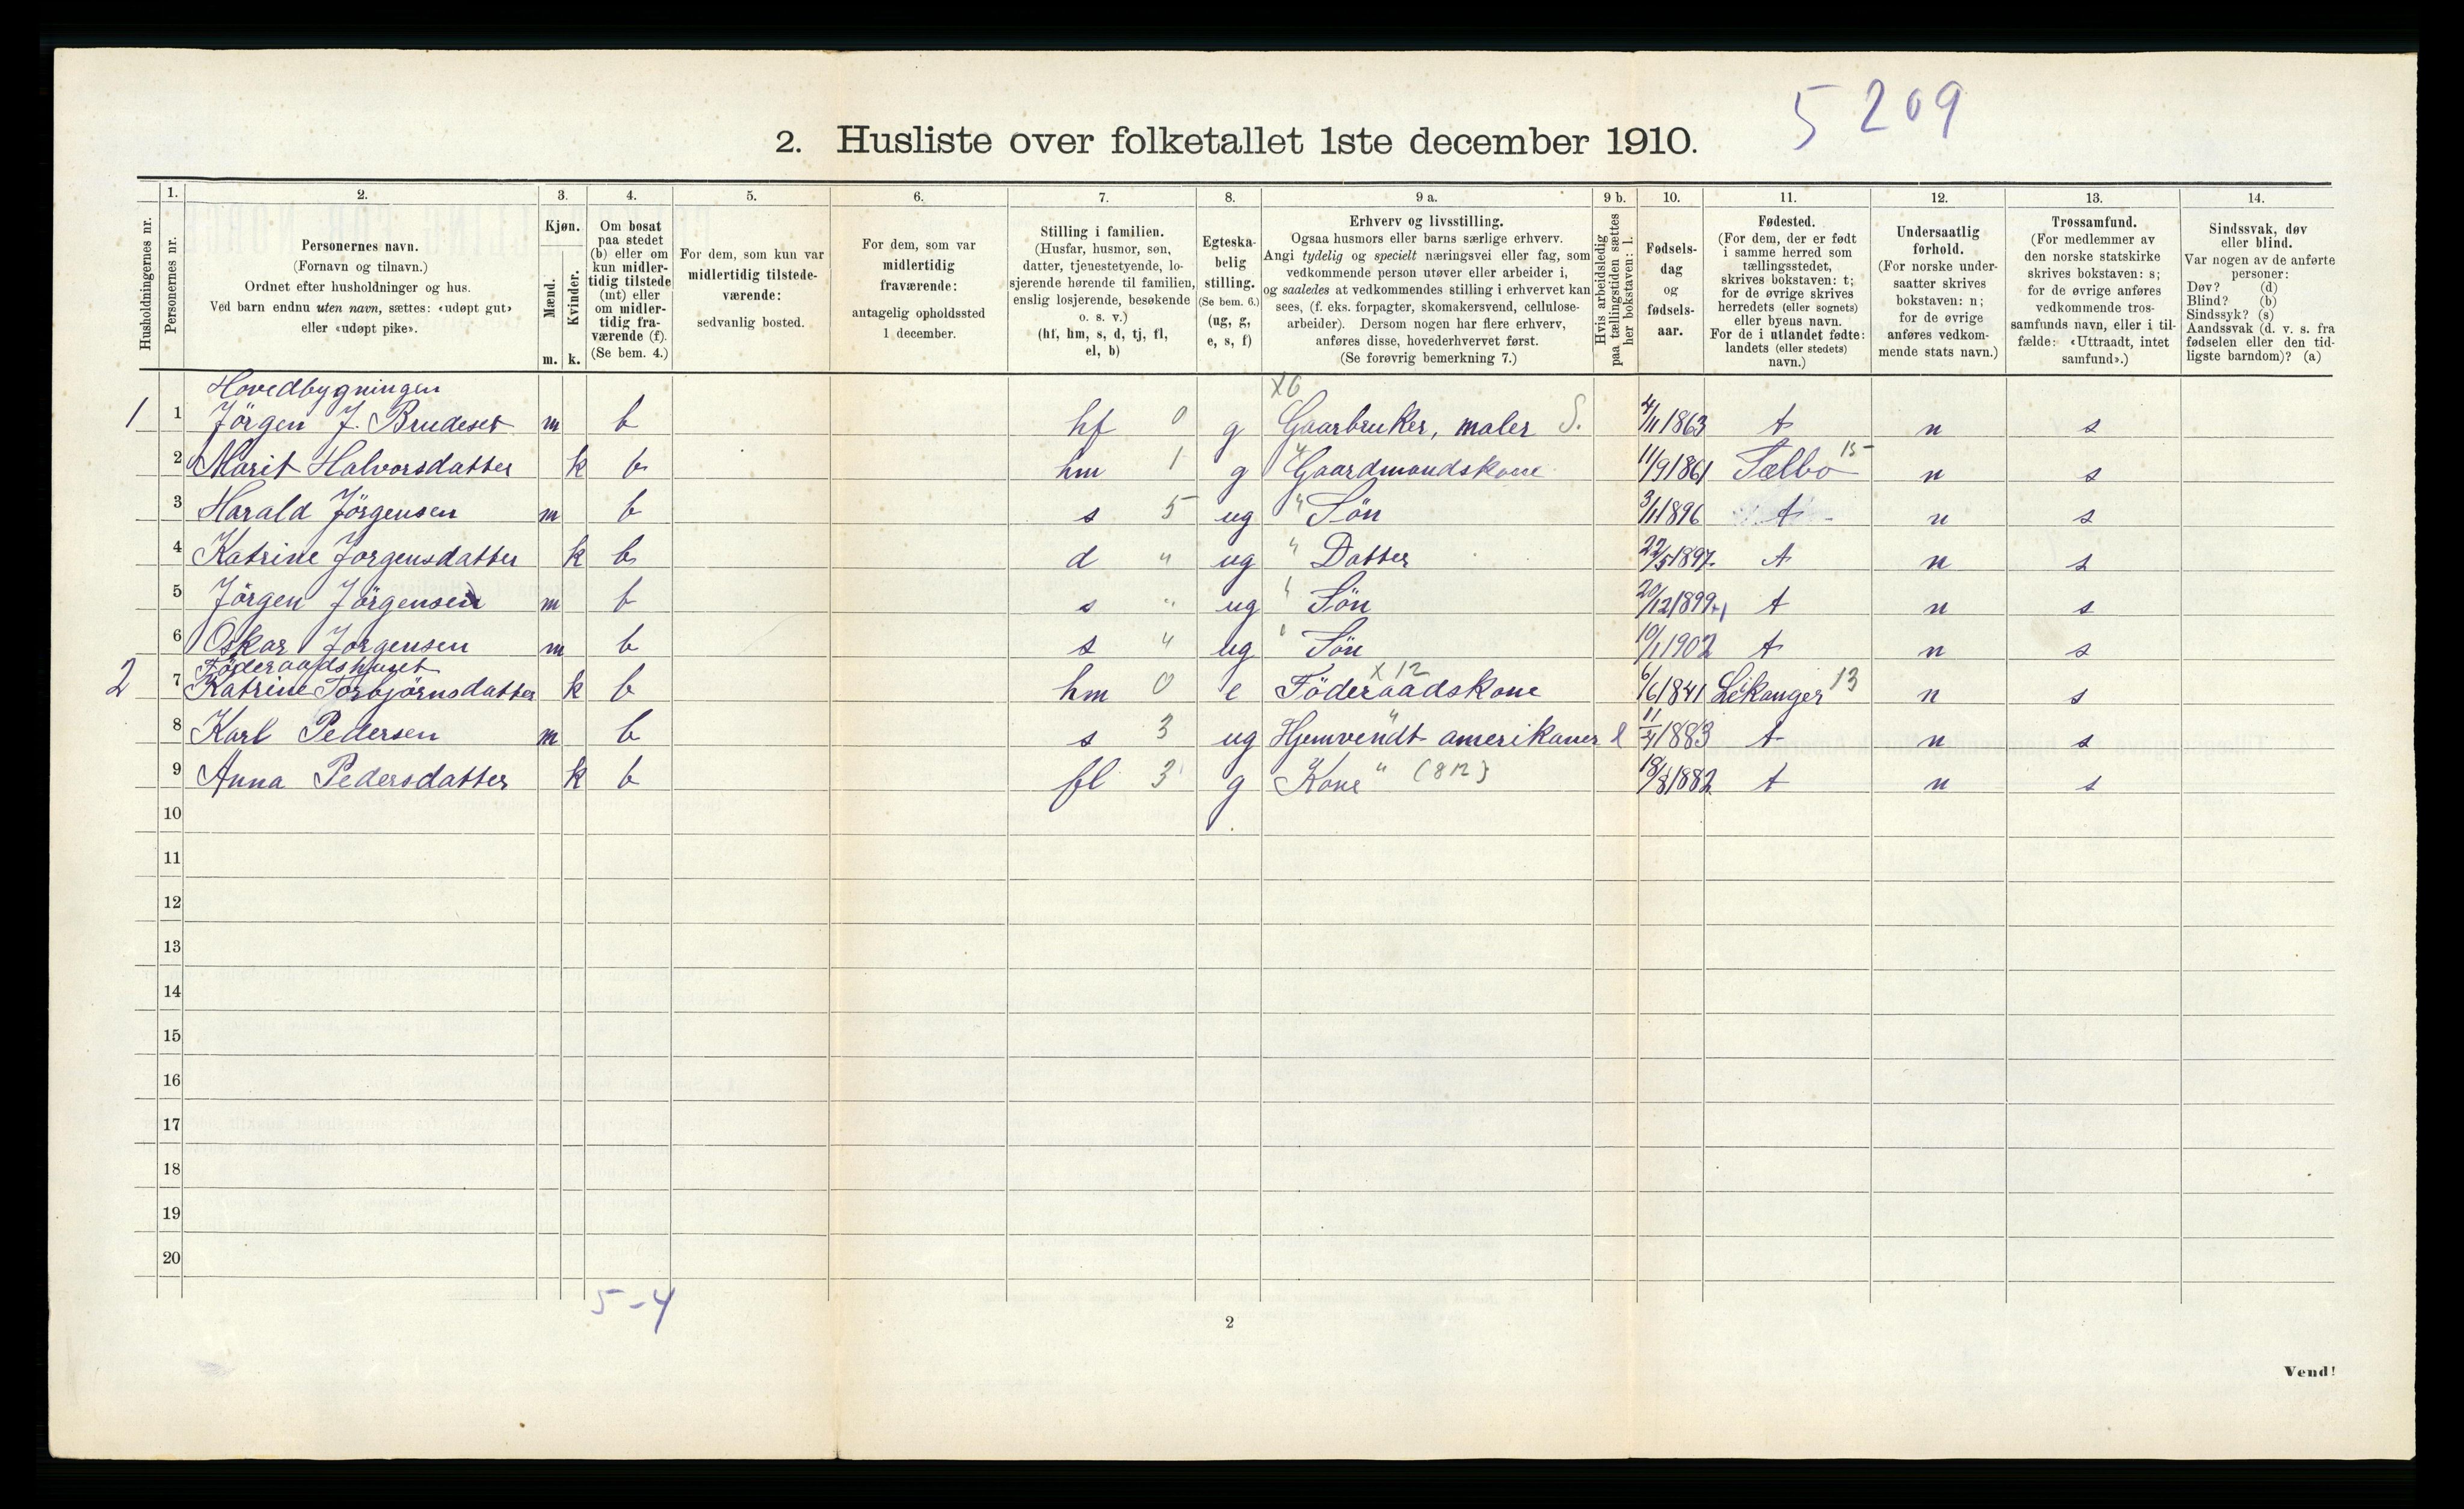 5209
2. Husliste over folketallet 1ste december 1910.
Husholdningernes nr.
1. Personernes nr.
2. Personernes navn.
(Fornavn og tilnavn.)
Ordnet efter husholdninger og hus.
Ved barn endnu uten navn, sættes: «udøpt gut»
eller «udøpt pike».
3. Kjøn.
Mænd. m.
Kvinder. k.
4. Om bosat
paa stedet
(b) eller om
kun midler-
tidig tilstede
(mt) eller
om midler-
tidig fra-
værende (f).
(Se bem. 4.)
5. For dem, som kun var
midlertidig tilstede-
værende:
sedvanlig bosted.
6. For dem, som var
midlertidig
fraværende:
antagelig opholdssted
1 december.
7. Stilling i familien.
(Husfar, husmor, søn,
datter, tjenestetyende, lo-
sjerende hørende til familien,
enslig losjerende, besøkende
o. s. v.)
(hf, hm, s, d, tj, fl,
el, b)
8. Egteska-
belig
stilling.
(Se bem. 6.)
(ug, g,
e, s, f)
9 a. Erhverv og livsstilling.
Ogsaa husmors eller barns særlige erhverv.
Angi tydelig og specielt næringsvei eller fag, som
vedkommende person utøver eller arbeider i,
og saaledes at vedkommendes stilling i erhvervet kan
sees, (f. eks. forpagter, skomakersvend, cellulose-
arbeider). Dersom nogen har flere erhverv,
anføres disse, hovederhvervet først.
(Se forøvrig bemerkning 7.)
9 b. Hvis arbeidsledig
paa tællingstiden sættes
her bokstaven: l.
10. Fødsels-
dag
og
fødsels-
aar.
11. Fødested.
(For dem, der er født
i samme herred som
tællingsstedet,
skrives bokstaven: t;
for de øvrige skrives
herredets (eller sognets)
eller byens navn.
For de i utlandet fødte:
landets (eller stedets)
navn.)
12. Undersaatlig
forhold.
(For norske under-
saatter skrives
bokstaven: n;
for de øvrige
anføres vedkom-
mende stats navn.)
13. Trossamfund.
(For medlemmer av
den norske statskirke
skrives bokstaven: s;
for de øvrige anføres
vedkommende tros-
samfunds navn, eller i til-
fælde: «Uttraadt, intet
samfund».)
14. Sindssvak, døv
eller blind.
Var nogen av de anførte
personer:
Døv? (d)
Blind? (b)
Sindssyk? (s)
Aandssvak (d. v. s. fra
fødselen eller den tid-
ligste barndom)? (a)
Hovedbygningen X6
1 1 Jörgen J. Brudeset m b hf 0 g Gaarbruker, maler S. 4/11 1863 t n s
2 Marit Halvorsdatter k b hm 1 g " Gaardmandskone 11/9 1861 Sælbo 15 n s
3 Harald Jörgensen m b s 5 ug " Sön 3/1 1896 t n s
4 Katrine Jorgensdatter k b d " ug " Datter 22/5 1897. t n s
5 Jörgen Jörgensen m b s " ug " Sön 20/12 1899 t n s
6 Oskar Jorgensen m b s " ug " Sön 10/1 1902 t n s
Föderaadshuset X 12
2 7 Katrine Torbjörnsdatter k b hm 0 e Föderaadskone 6/6 1841 Lekanger 13 n s
8 Karl Pedersen m b s 3 ug Hjemvendt amerikaner l 11/4 1883 t n s
9 Anna Pedersdatter k b fl 3 g Kone " (812) 18/8 1882 t n s
10
11
12
13
14
15
16
17
18
19
20
5-4
2
Vend!